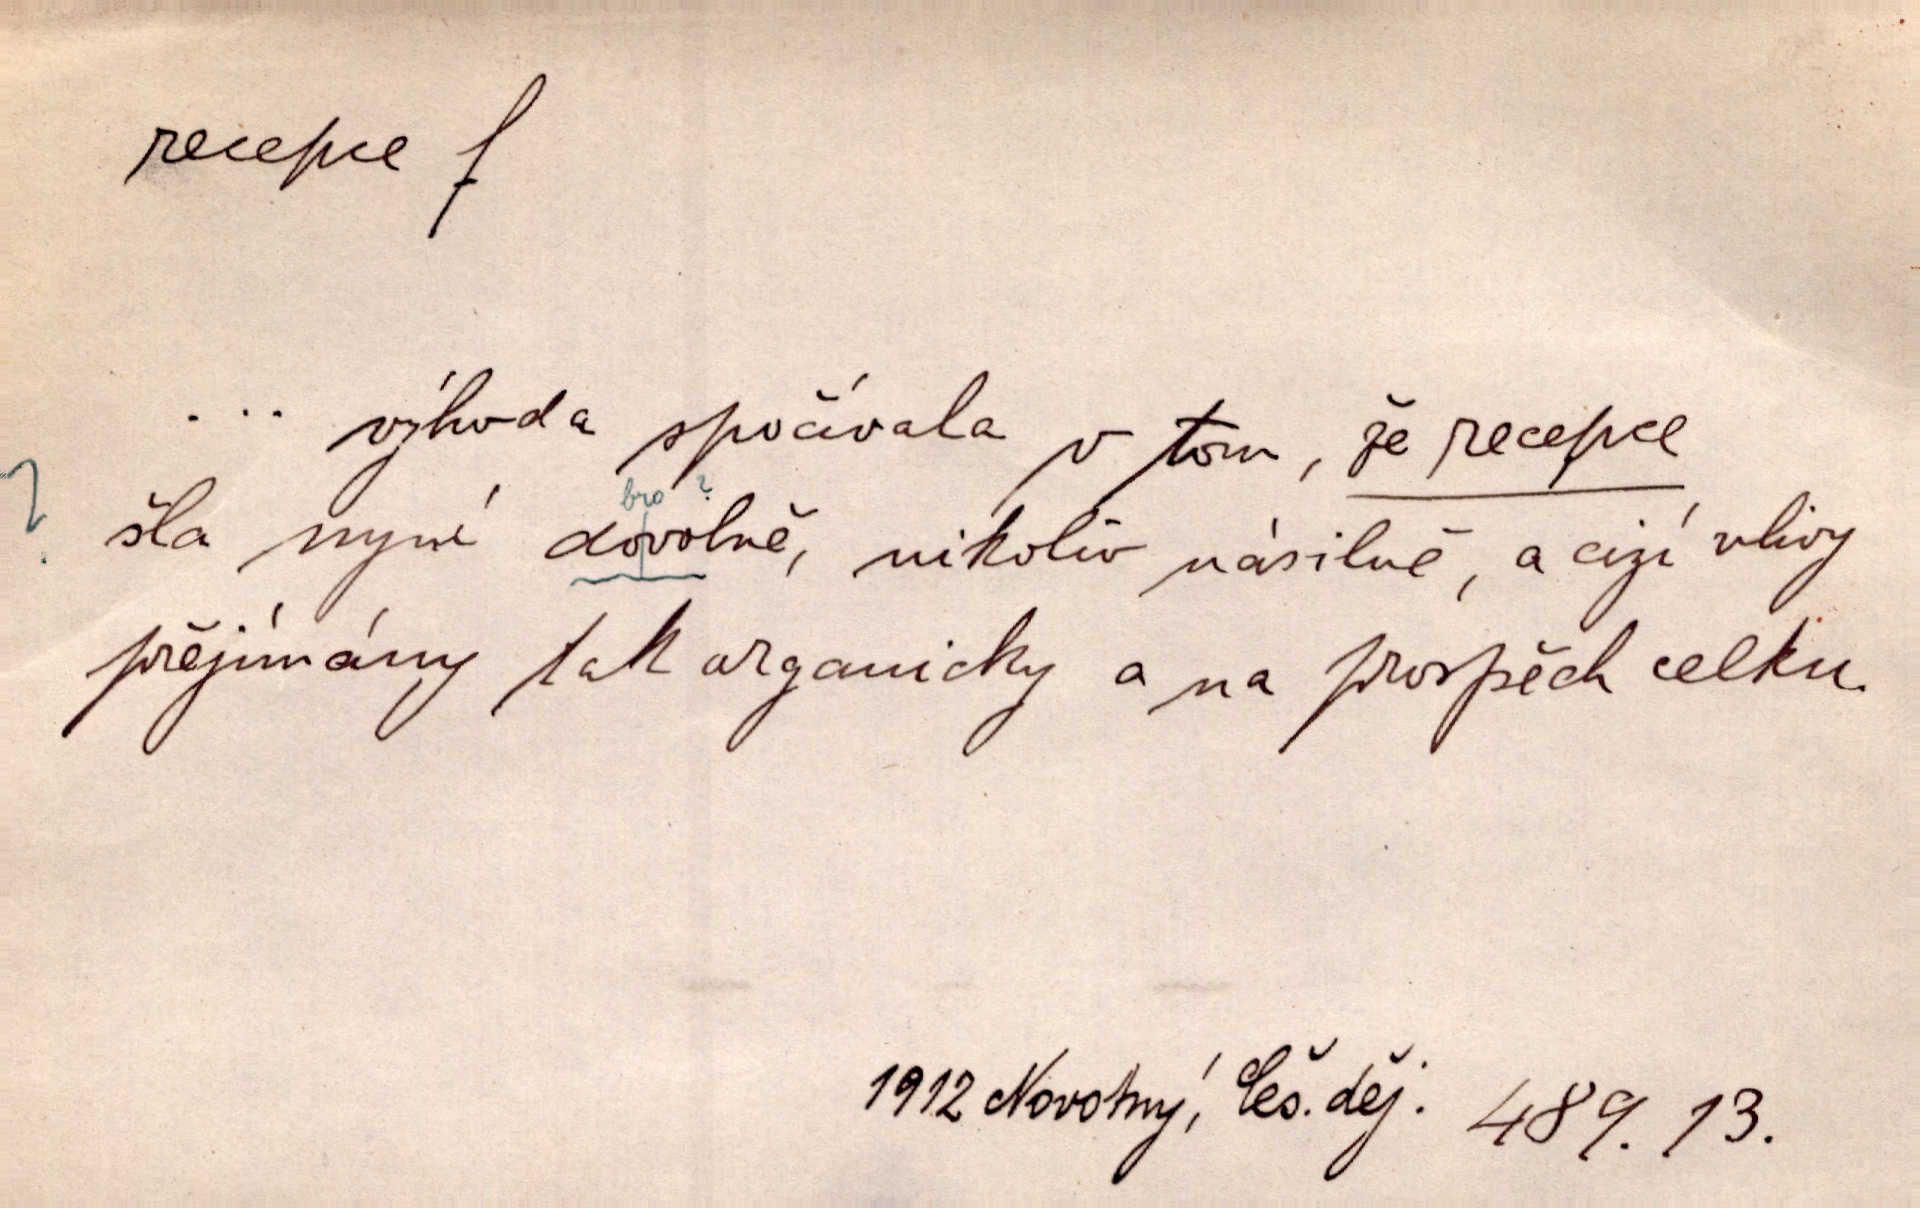 recepce f
... výhoda spočívala v tom, že recepce
bro ?
? šla nyní dovolně, nikoliv násilně, a cizí vlivy
přejímány tak organicky a na prospěch celku.
1912 Novotný, Čes. děj. 489. 13.